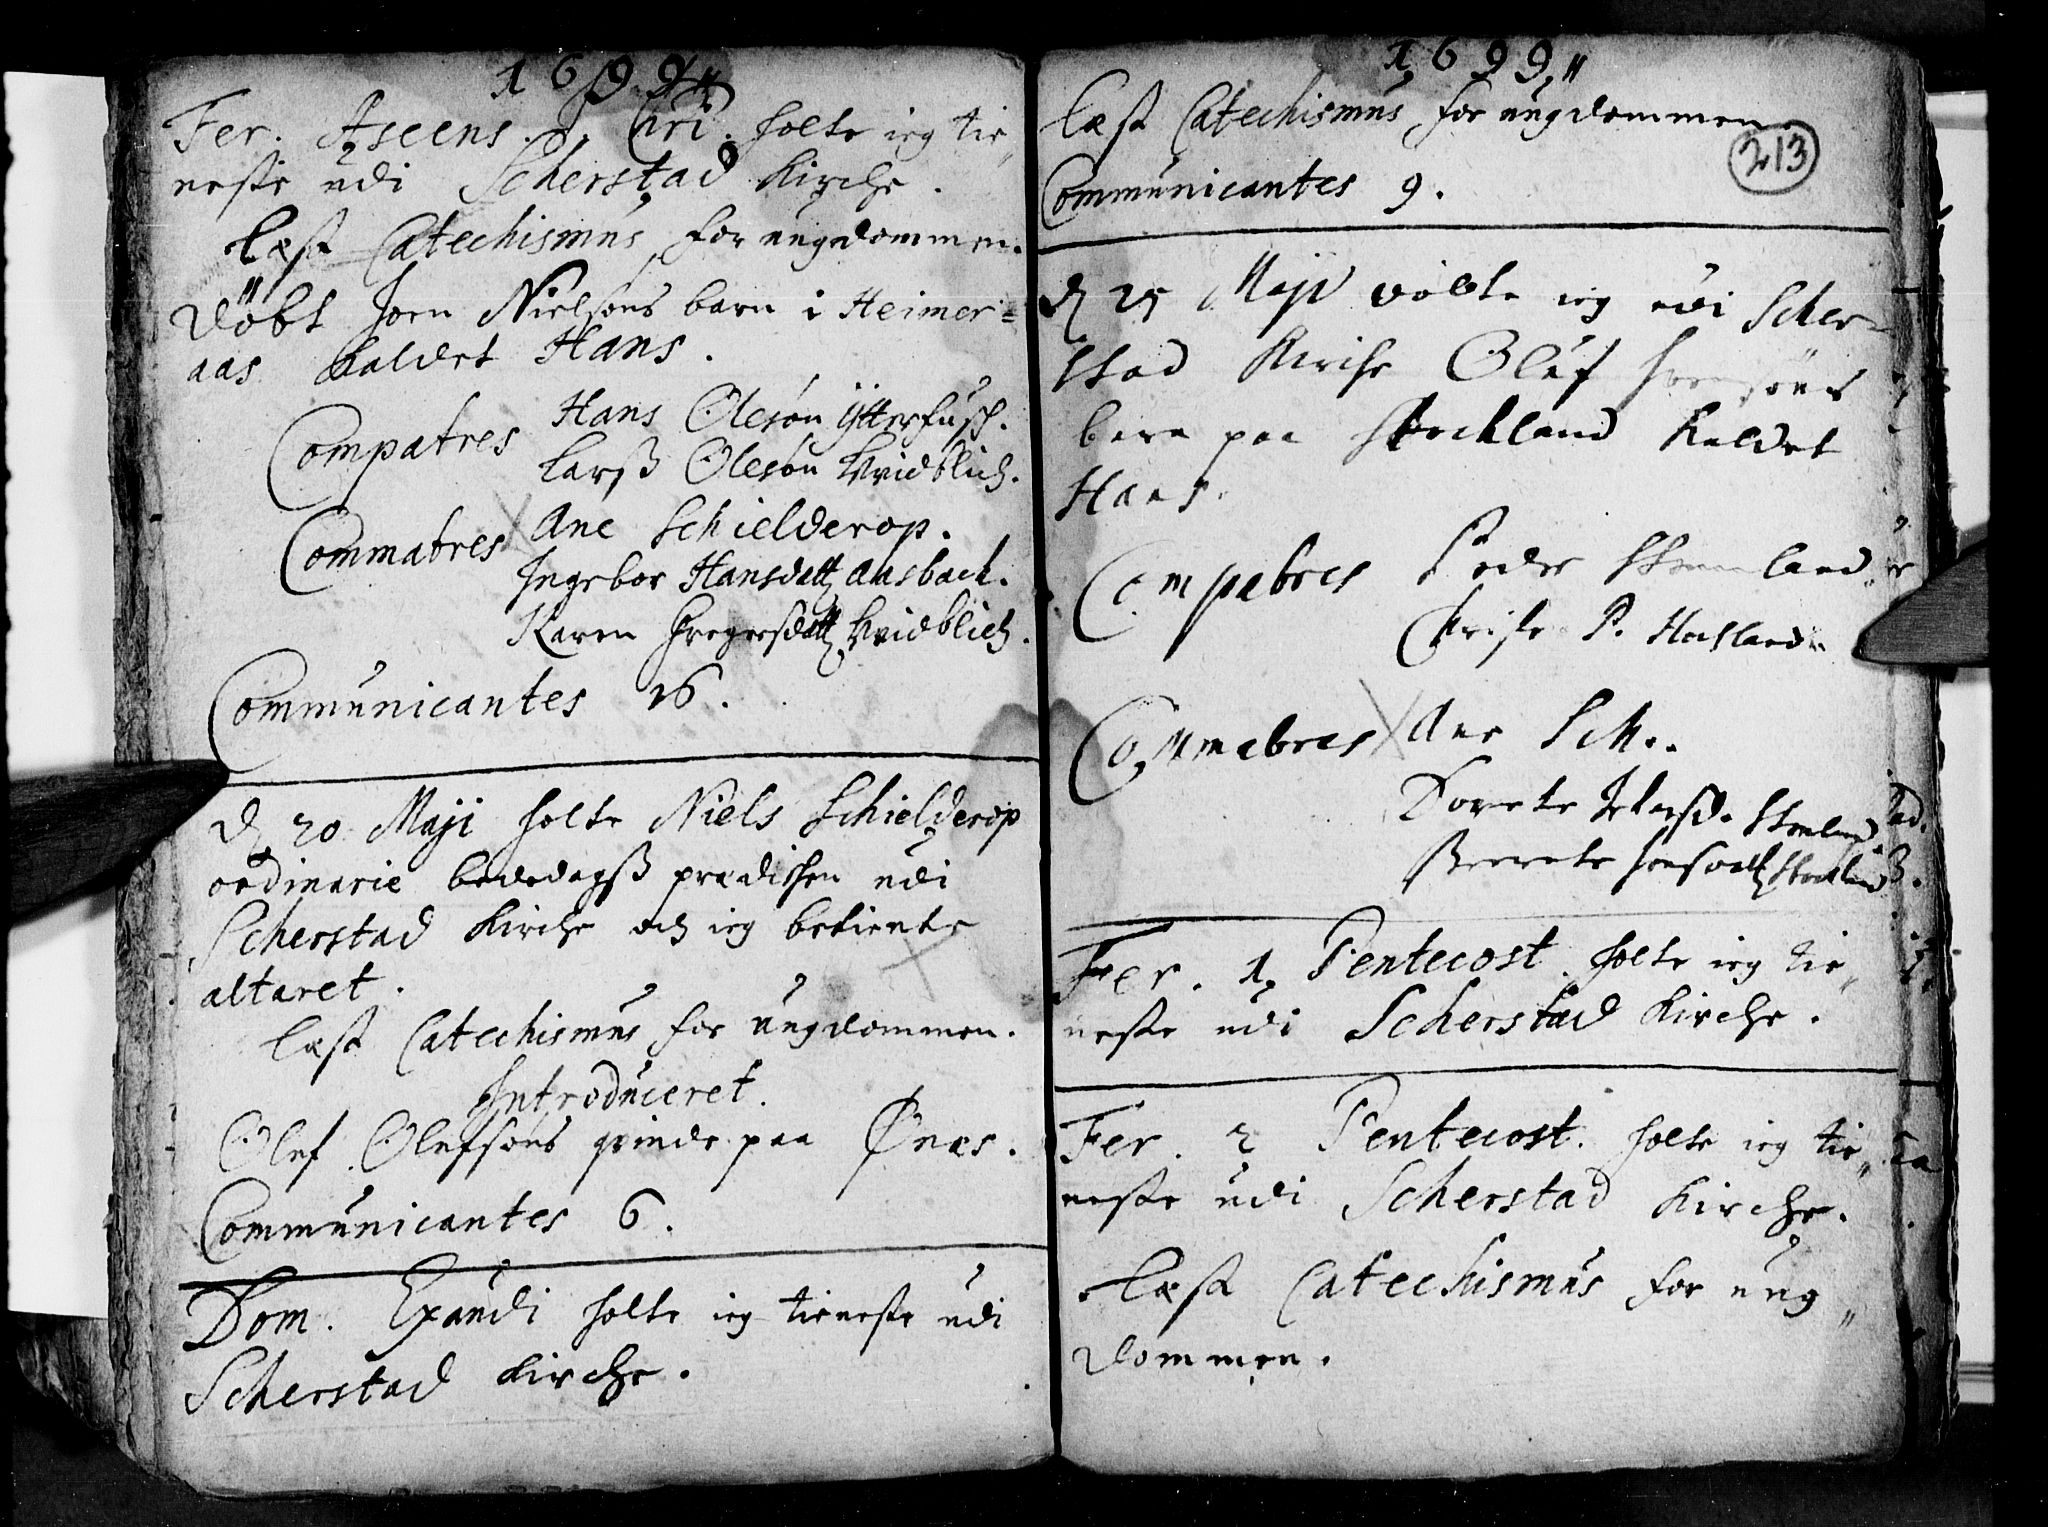 1699
Fer. Ascens. Chri. holte ieg tie„
neste udi Scherstad Kirche.
læst Catechismus for ungdommen.
Döbt Joen Nielsöns barn i Heimer=
aas kaldet Hans.
Compatres Hans Olesön Ytterfusch.
Larsz Olesön Hvidblich.
Commatres Ane Schielderop.
Ingebor Hansdatt Aasbach.
Karen Gregersdatt Hvidblich.
Communicantes 16.
d 20 Maji holte Niels Schielderop
ordinarie bededagsz prædichen udi
Scherstad Kirche och ieg betiente
altaret.
læst Catechismus for ungdommen.
Introduceret.
Olef Olufsöns qvinde paa Ønæs.
Communicantes 6.
Dom. Exaudi holte ieg tieneste udi
Scherstad Kirche.
1699
213
læst Catechismus for ungdommen
Communicantes 9.
d 25 Maji döbte ieg udi Scher=
stad Kirche Oluf
barn paa kaldet
Hans.
Compatres Peder
P.
Commatres Ane Sch.
Dorete
Berete
Fer. 1 Pentecost. holte ieg tie„
neste udi Scherstad Kirche.
Fer. 2 Pentecost. holte ieg tie„
neste udi Scherstad Kirche.
læst Catechismus for ung„
dommen.